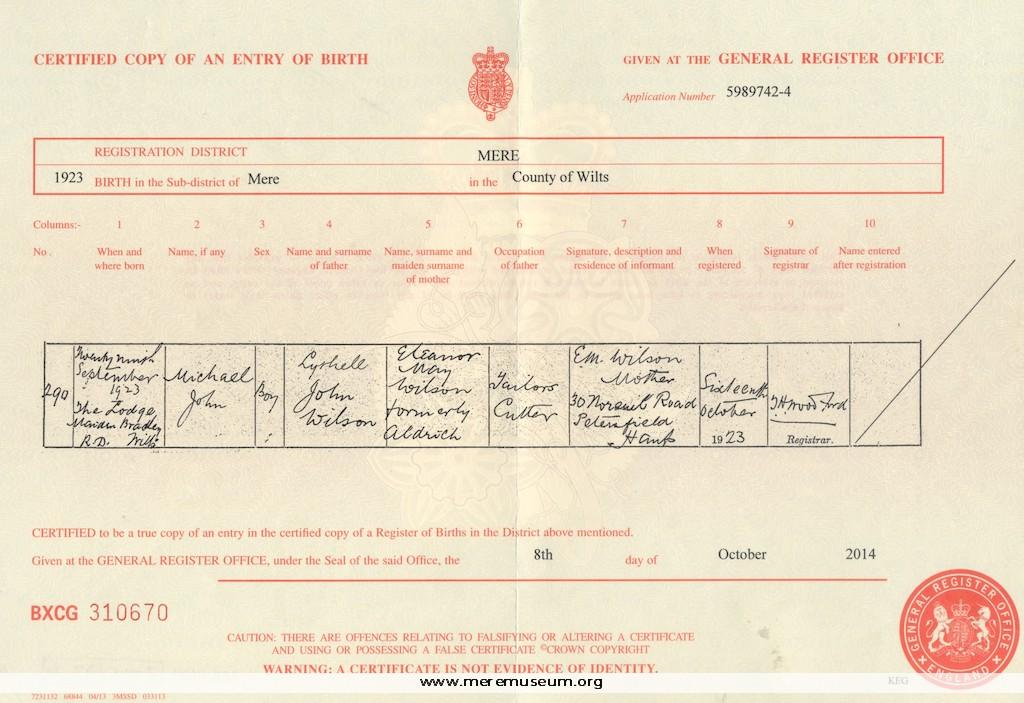 CERTIFIED COPY OF AN ENTRY OF BIRTH
GIVEN AT THE GENERAL REGISTER OFFICE
Application Number 5989742-4
REGISTRATION DISTRICT MERE
1923 BIRTH in the Sub-district of Mere in the County of Wilts
Columns:- 1 2 3 4 5 6 7 8 9 10
No. When and where born
Name, if any
Sex
Name and surname of father
Name, surname and maiden surname of mother
Occupation of father
Signature, description and residence of informant
When registered
Signature of registrar
Name entered after registration
290
Twenty ninth
September
1923
The Lodge
Maiden Bradley
R.D. Wilts
Michael
John
Boy
John
Wilson
Eleanor
May
Wilson
formerly
Aldrich
Tailors
Cutter
E.M. Wilson
Mother
30 Road
Petersfield
Hants
Sixteenth
October
1923
Registrar.
CERTIFIED to be a true copy of an entry in the certified copy of a Register of Births in the District above mentioned.
Given at the GENERAL REGISTER OFFICE, under the Seal of the said Office, the 8th day of October 2014
BXCG 310670
CAUTION: THERE ARE OFFENCES RELATING TO FALSIFYING OR ALTERING A CERTIFICATE
AND USING OR POSSESSING A FALSE CERTIFICATE ©CROWN COPYRIGHT
WARNING: A CERTIFICATE IS NOT EVIDENCE OF IDENTITY.
GENERAL REGISTER OFFICE
ENGLAND
KEG
www.meremuseum.org
7231132 60844 04/13 3MSSD 033113